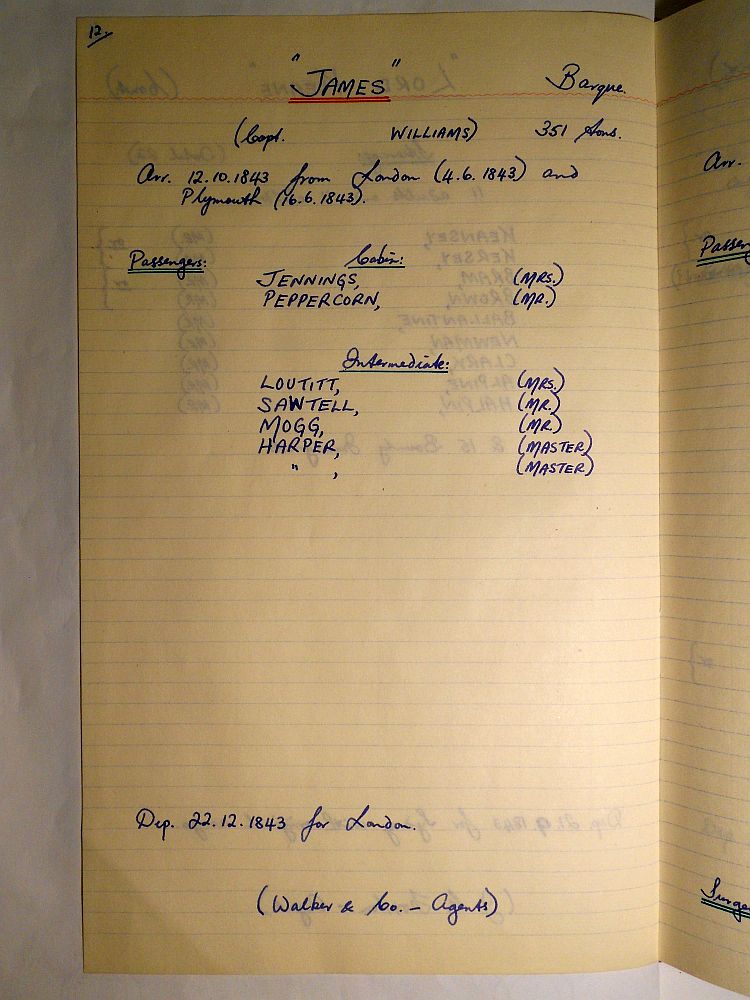 12.
"JAMES" Barque.
(Capt. WILLIAMS) 351 tons.
Arr. 12.10.1843 from London (4.6.1843) and
Plymouth (16.6.1843).
Passengers: Cabin:
JENNINGS, (MRS.)
PEPPERCORN, (MR.)
Intermediate:
LOUTITT, (MRS.)
SAWTELL, (MR.)
MOGG, (MR.)
HARPER, (MASTER)
" , (MASTER)
Dep. 22.12.1843 for London.
(Walker & Co. – Agents)
Arr.